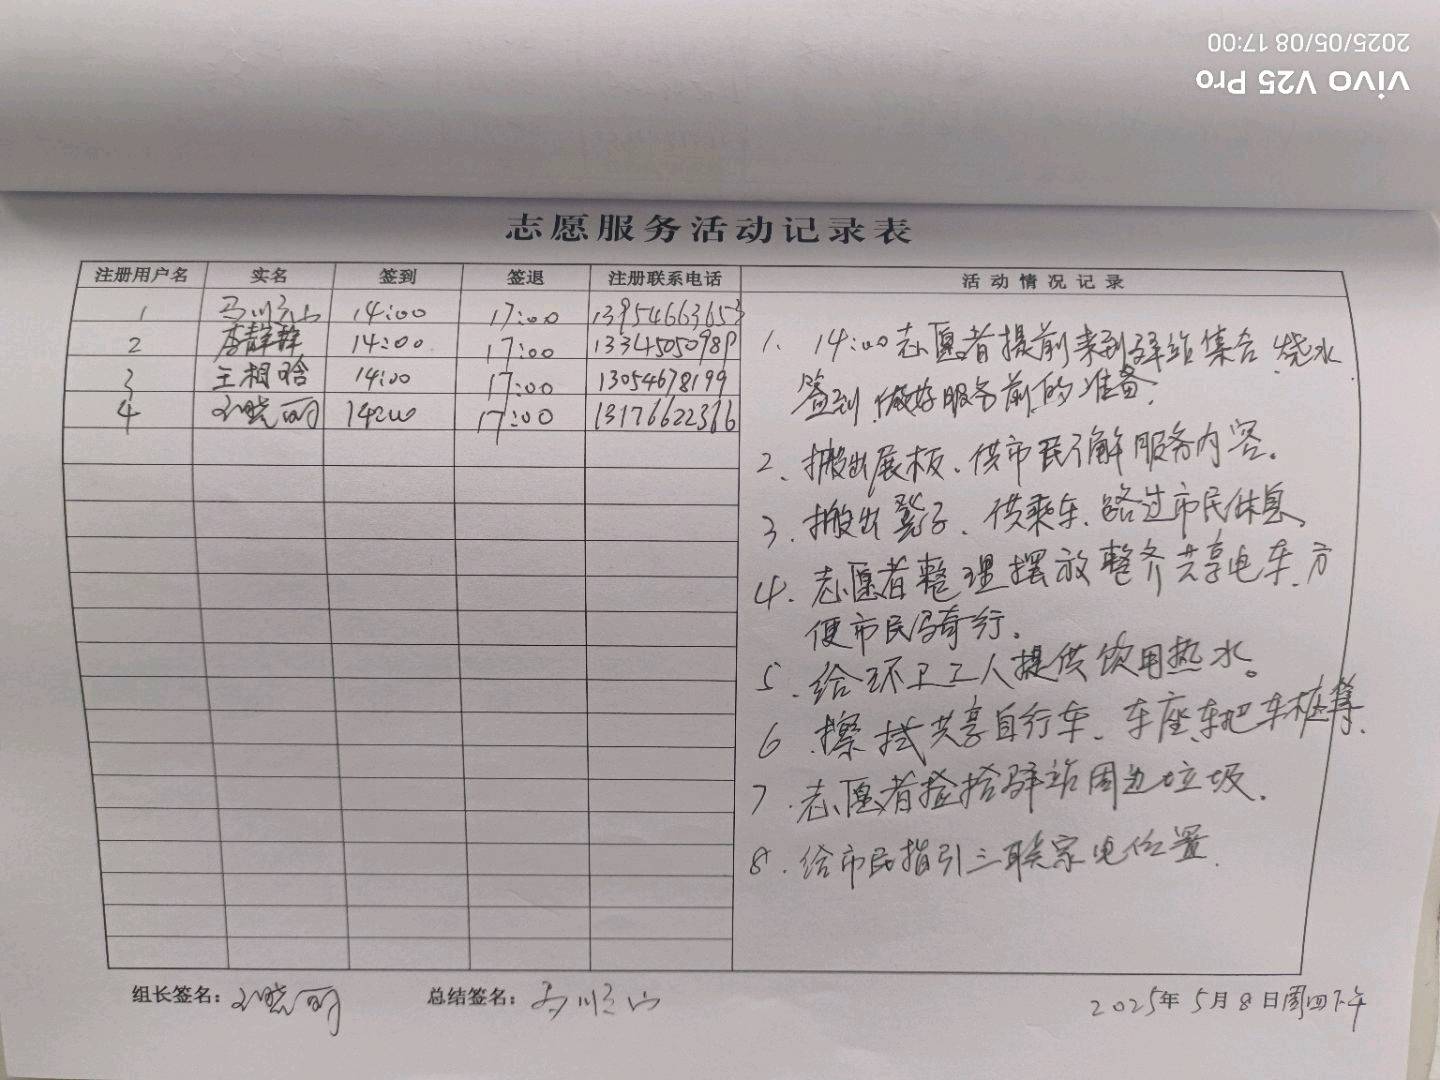 2025/05/08 17:00
vivo V25 Pro
志愿服务活动记录表
注册用户名 实名 签到 签退 注册联系电话 活动情况记录
1 马顺山 14:00 17:00 13954663653
2 李静静 14:00 17:00 13345050989
3 王相晗 14:00 17:00 13054678199
4 刘晓丽 14:00 17:00 13176622366
1. 14:00志愿者提前来到驿站集合、烧水
签到、做好服务前的准备.
2、搬出展板、供市民了解服务内容。
3、搬出凳子、供乘车、路过市民休息。
4、志愿者整理摆放整齐共享电车、方
便市民骑行.
5、给环卫工人提供饮用热水。
6、擦拭共享自行车、车座、车把车桩等.
7、志愿者捡拾驿站周边垃圾.
8、给市民指引三联家电位置.
组长签名:刘晓丽 总结签名:马顺山 2025年5月8日周四下午